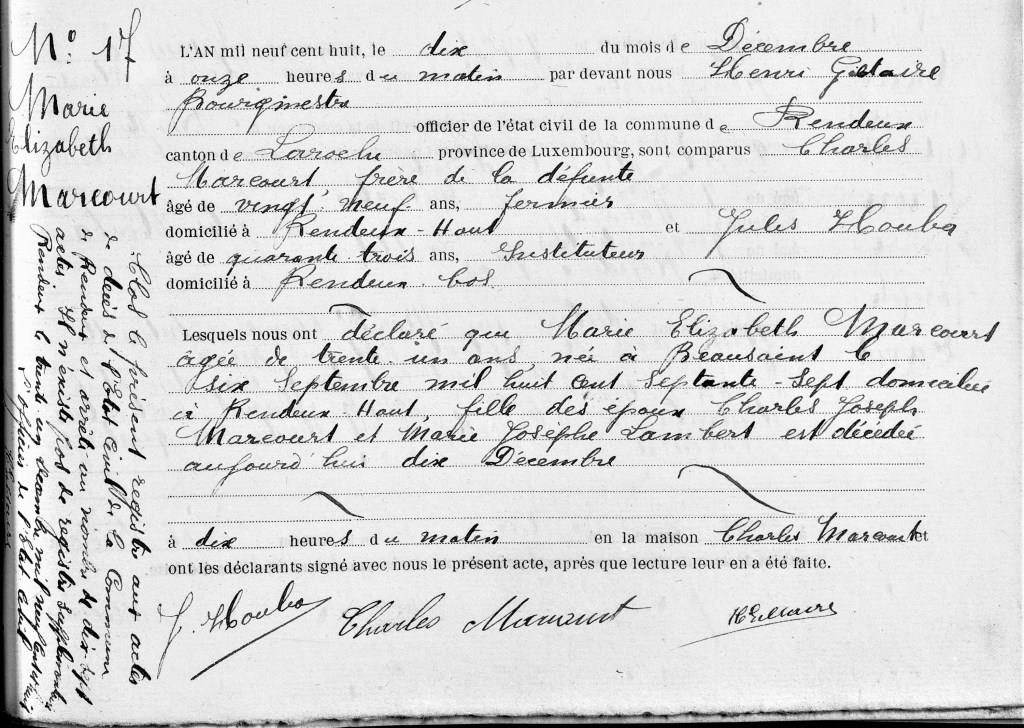 N° 17
Marie
Elizabeth
Marcourt
L'AN mil neuf cent huit, le dix du mois de Décembre
à onze heures du matin par devant nous Henri
Bourgmestre
officier de l'état civil de la commune de Rendeux
canton de Laroche province de Luxembourg, sont comparus Charles
Marcourt, frère de la défunte
âgé de vingt neuf ans, fermier
domicilié à Rendeux-Haut et Jules Houba
âgé de quarante trois ans, Instituteur
domicilié à Rendeux bas
Lesquels nous ont déclaré que Marie Elizabeth Marcourt
agée de trente un ans née à Beausaint le
six Septembre mil huit cent Septante-Sept domiciliée
à Rendeux-Haut, fille des époux Charles Joseph
Marcourt et Marie Josèphe Lambert est décédée
aujourd'hui dix Décembre
à dix heures du matin en la maison Charles Marcourt et
ont les déclarants signé avec nous le présent acte, après que lecture leur en a été faite.
J. Houba Charles Marcourt
Clos le présent registre aux actes
de décès de l'Etat Civil de la Commune
de Rendeux et arrêté au nombre de dix sept
actes. Il n'existe pas de registre supplémentaire
Rendeux le trente un décembre mil neuf cent huit
L'officier de l'Etat Civil